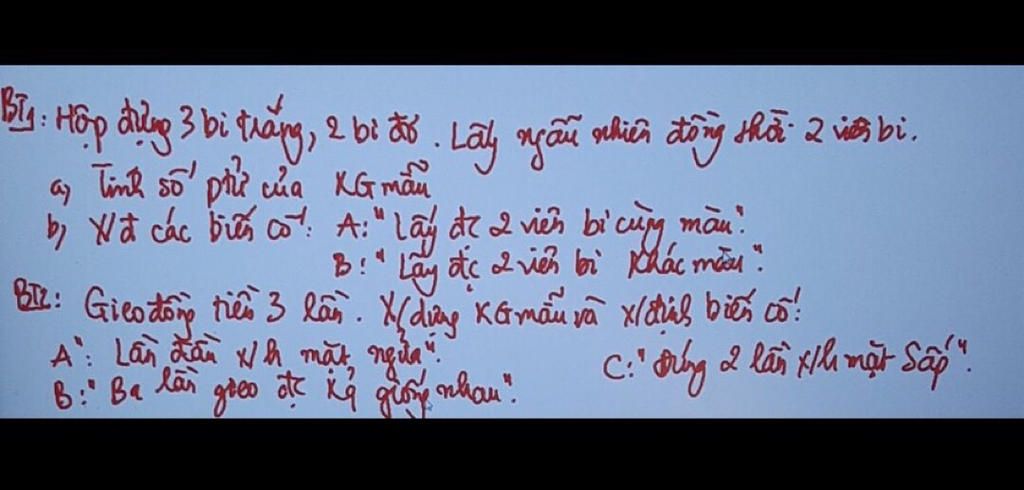 BT1: Hộp đựng 3 bi trắng, 2 bi đỏ. Lấy ngẫu nhiên đồng thời 2 viên bi.
a, Tính số phtử của KG mẫu
b, X/đ các biến cố: A: "Lấy đc 2 viên bi cùng màu".
B: "Lấy đc 2 viên bi khác màu".
BT2: Gieo đồng tiền 3 lần. X/dựng KG mẫu và x/định biến cố:
A": Lần đầu x/h mặt ngửa".
B: "Ba lần gieo đc kq giống nhau".
C: "đúng 2 lần x/h mặt Sấp".